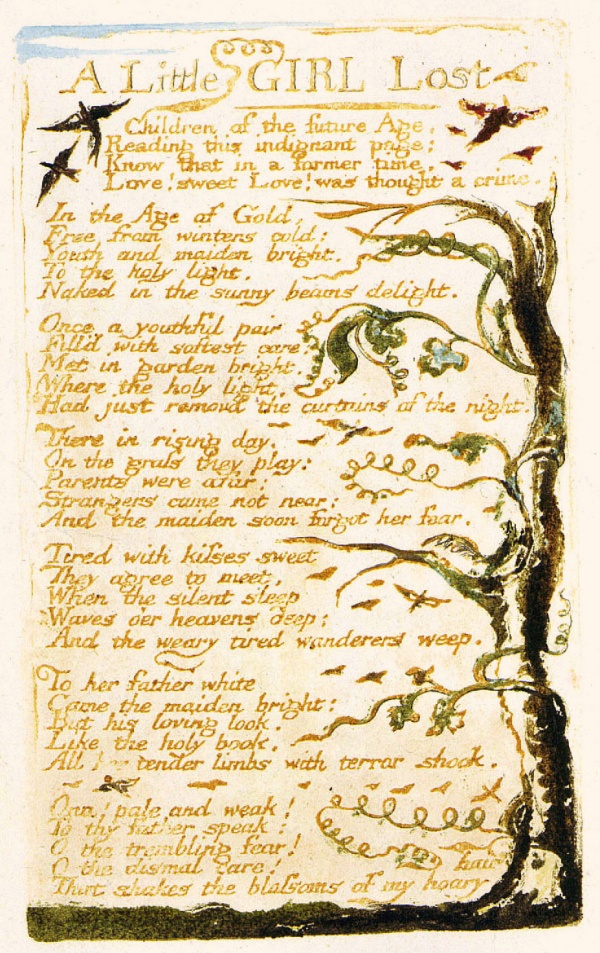 A Little GIRL Lost
Children of the future Age,
Reading this indignant page;
Know that in a former time,
Love! sweet Love! was thought a crime.
In the Age of Gold,
Free from winters cold:
Youth and maiden bright,
To the holy light,
Naked in the sunny beams delight.
Once a youthful pair
Fill'd with softest care:
Met in garden bright,
Where the holy light,
Had just removd the curtains of the night.
There in rising day,
On the graſs they play:
Parents were afar:
Strangers came not near:
And the maiden soon forgot her fear.
Tired with kiſses sweet
They agree to meet,
When the silent sleep
Waves oer heavens deep;
And the weary tired wanderers weep.
To her father white
Came the maiden bright:
But his loving look,
Like the holy book,
All her tender limbs with terror shook.
Ona! pale and weak!
To thy father speak:
O the trembling fear!
O the dismal care!
That shakes the bloſsoms of my hoary
hair